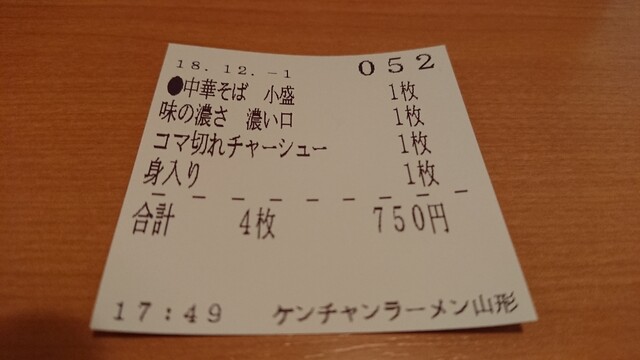 18.12.-1 052
●中華そば 小盛 1枚
味の濃さ 濃い口 1枚
コマ切れチャーシュー 1枚
身入り 1枚
合計 4枚 750円
17:49 ケンチャンラーメン山形